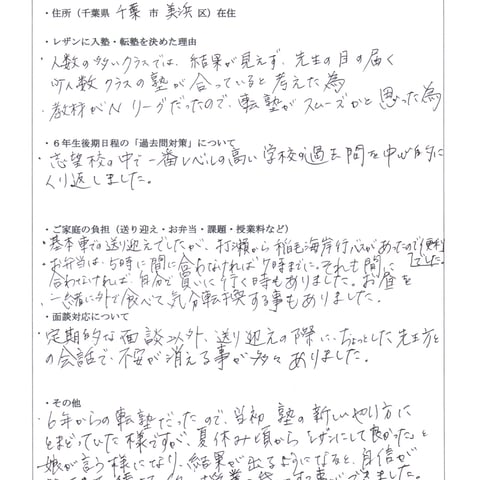 ・住所（千葉県 千葉 市 美浜 区）在住
・レザンに入塾・転塾を決めた理由
・人数の多いクラスでは、結果が見えず、先生の目の届く
少人数クラスの塾が合っていると考えた為
・教材がNリーグだったので、転塾がスムーズかと思った為
・６年生後期日程の「過去問対策」について
・志望校の中で一番レベルの高い学校の過去問を中心的に
くり返しました。
・ご家庭の負担（送り迎え・お弁当・課題・授業料など）
・基本車での送り迎えでしたが、打瀬から稲毛海岸行バスがあったので便利でした。
・お弁当は、5時に間に合わなければ7時までに。それも間に
合わなければ、自分で買いに行く時もありました。お昼を
一緒に外で食べて気分転換する事もありました。
・面談対応について
定期的な面談以外、送り迎えの際に、ちょっとした先生方と
の会話で、不安が消える事が多々ありました。
・その他
・6年からの転塾だったので、当初 塾の新しいやり方に
とまどっていた様ですが、夏休み頃から「レザンにして良かった」と
娘が言う様になり、結果が出るようになると、自信が